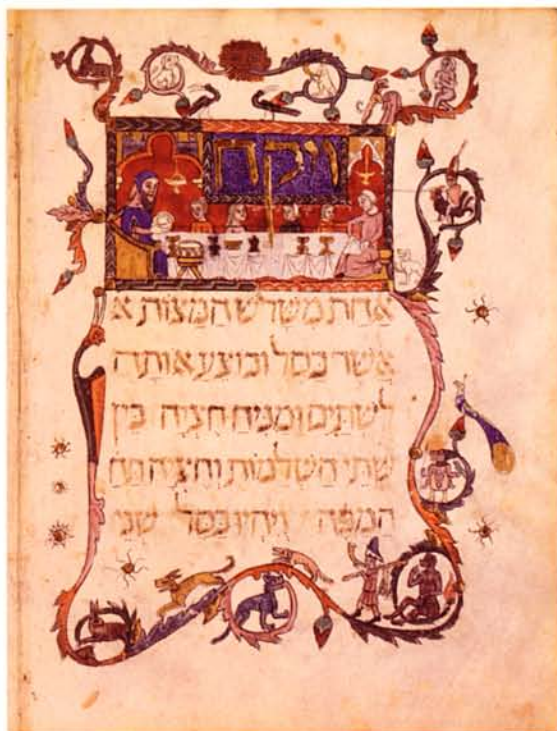 ויקח
אַחַת מִשְּׁלֹשׁ הַמַּצּוֹת א
אֲשֶׁר בַּסַּל וּבוֹצֵעַ אוֹתָהּ
לִשְׁתַּיִם וּמַנִּיחַ חֶצְיָהּ בֵּין
שְׁתֵּי הַשְּׁלֵמוֹת וְחֶצְיָהּ תַּח
הַמַּפָּה וְיִהְיוּ בַּסַּל שְׁנֵי